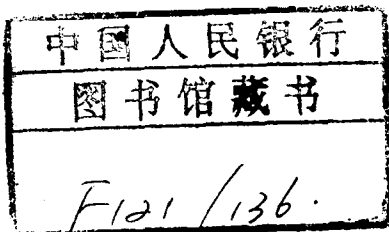 中国人民银行
图书馆藏书
F121/136.